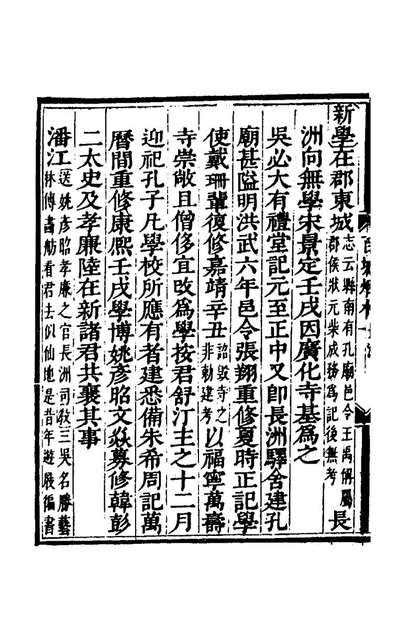 新學在郡東城志云縣南有孔廟邑令王禹偁屬郡侯狀元柴成務爲記後無考長
洲向無學宋景定壬戌因廣化寺基爲之
吳必大有禮堂記元至正中又卽長洲驛舍建孔
廟甚隘明洪武六年邑令張翔重修夏時正記學
使戴珊葺復修嘉靖辛丑詔毀寺之非勅建者以福寧萬壽
寺崇敞且僧侈宜改爲學按君舒汀主之十二月
迎祀孔子凡學校所應有者建悉備朱希周記萬
曆間重修康熙壬戌學博姚彥昭文焱募修韓彭
二太史及孝廉陸在新諸君共襄其事
潘江送姚彥昭孝廉之官長洲司教三吳名勝藝林傳畫舫看君去似仙地是昔年遊屐徧書